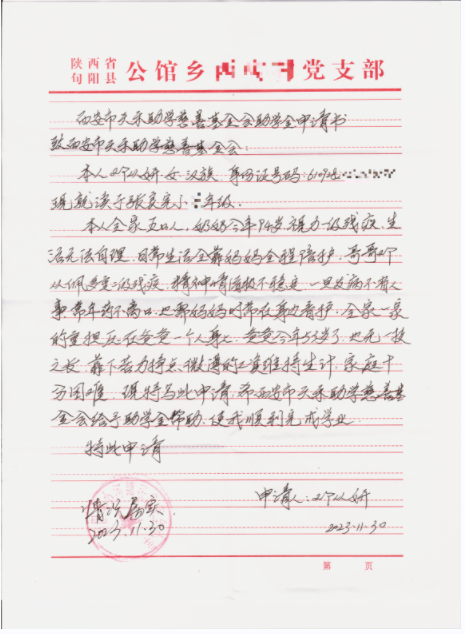 陕西省
旬阳县 公馆乡 党支部
西安市天禾助学慈善基金会助学金申请书
致西安市天禾助学慈善基金会:
本人 从妍 女 汉族 身份证号码:6109
现就读于张良完小 年级.
本人全家四口人,奶奶今年94岁视力一级残疾,生
活无法自理,日常生活全靠妈妈全程陪护,哥哥
从佩患一级残疾,精神情绪极不稳定,一旦发病不省人
事,常年药不离口,也需妈妈时常在身边看护.全家一家
的重担压在爸爸一个人身上,爸爸今年55岁了,也无一技
之长,靠下苦力挣点微薄的工资维持生计,家庭十
分困难,现特写此申请,希西安市天禾助学慈善基
金会给予助学金帮助,使我顺利完成学业.
特此申请
申请人: 从妍
情况属实.
2023.11.30
2023.11.30
第 页